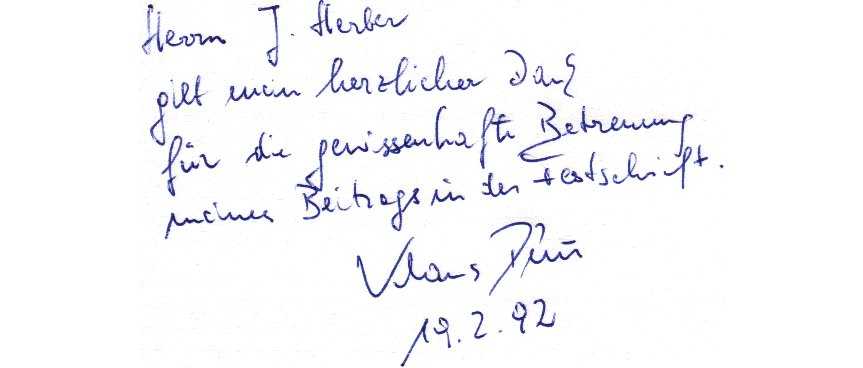 Herrn J. Herber
gilt mein herzlicher Dank
für die gewissenhafte Betreuung
meines Beitrags in der Festschrift.
Klaus
19.2.92